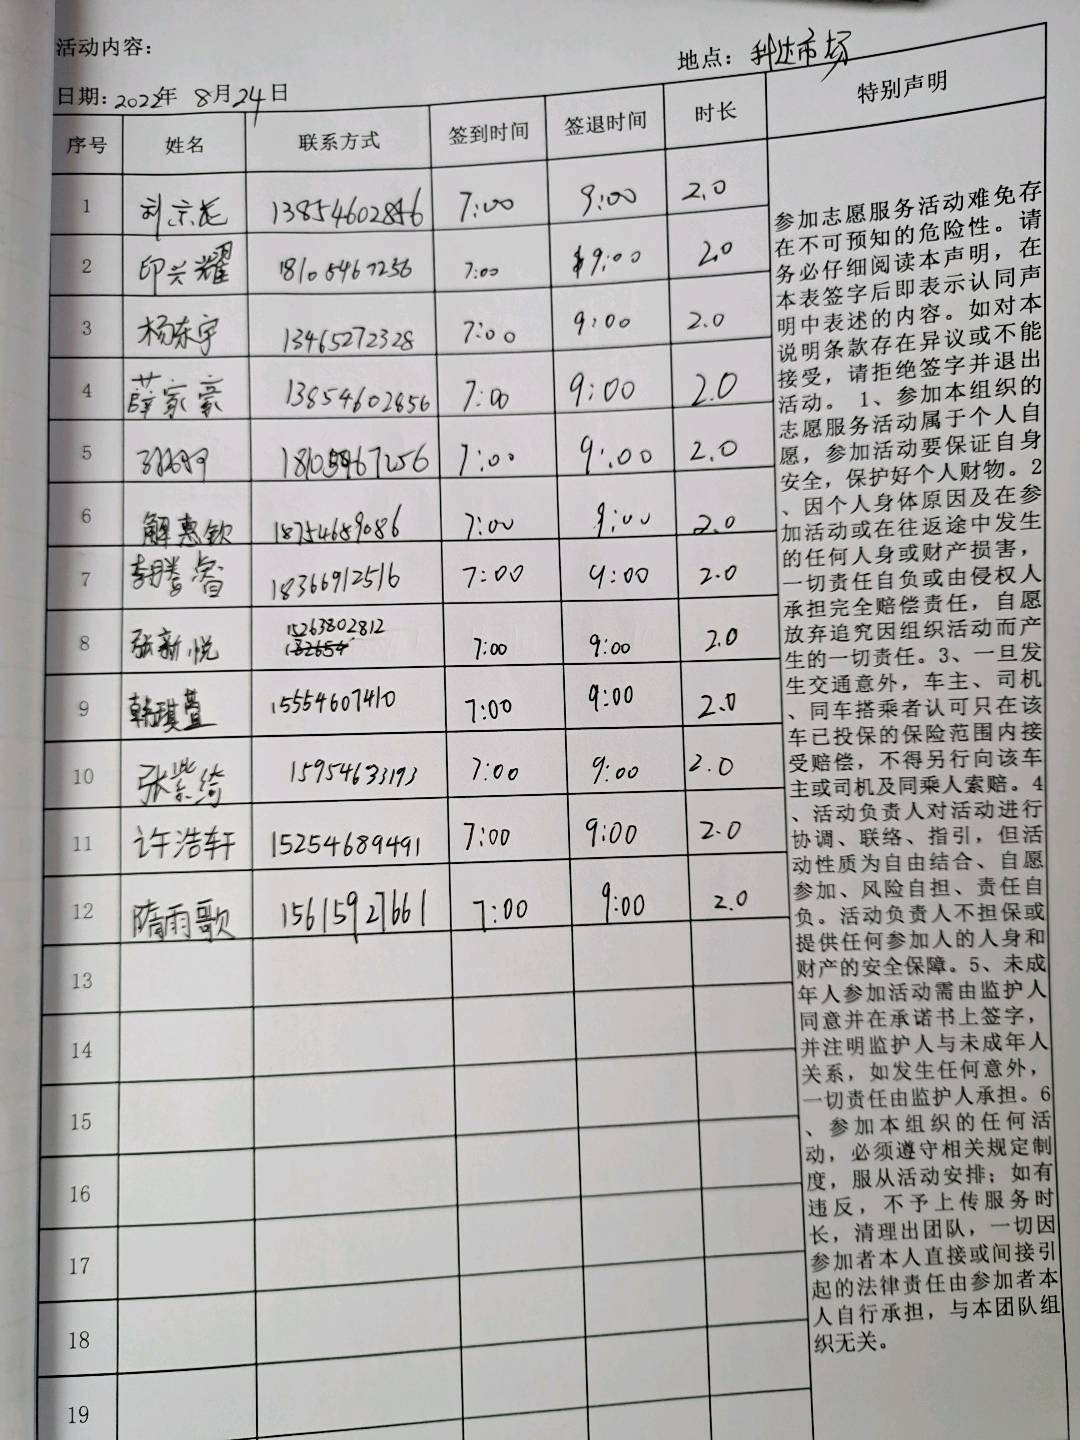 活动内容:
地点: 科达市场
日期: 2022年 8月24日
序号 姓名 联系方式 签到时间 签退时间 时长 特别声明
1 刘京龙 13854602856 7:00 9:00 2.0
2 印兴耀 18105467256 7:00 9:00 2.0
3 杨东宇 13465272328 7:00 9:00 2.0
4 薛家豪 13854602856 7:00 9:00 2.0
5 18105467256 7:00 9:00 2.0
6 解惠钦 18754689086 7:00 9:00 2.0
7 18366912516 7:00 9:00 2.0
8 张新悦 15263802812 7:00 9:00 2.0
9 韩琪萱 15554607410 7:00 9:00 2.0
10 张紫绮 15954633193 7:00 9:00 2.0
11 许浩轩 15254689491 7:00 9:00 2.0
12 隋雨歌 15615927661 7:00 9:00 2.0
13
14
15
16
17
18
19
参加志愿服务活动难免存
在不可预知的危险性。请
务必仔细阅读本声明，在
本表签字后即表示认同声
明中表述的内容。如对本
说明条款存在异议或不能
接受，请拒绝签字并退出
活动。 1、参加本组织的
志愿服务活动属于个人自
愿，参加活动要保证自身
安全，保护好个人财物。2
、因个人身体原因及在参
加活动或在往返途中发生
的任何人身或财产损害，
一切责任自负或由侵权人
承担完全赔偿责任，自愿
放弃追究因组织活动而产
生的一切责任。3、一旦发
生交通意外，车主、司机
、同车搭乘者认可只在该
车已投保的保险范围内接
受赔偿，不得另行向该车
主或司机及同乘人索赔。4
、活动负责人对活动进行
协调、联络、指引，但活
动性质为自由结合、自愿
参加、风险自担、责任自
负。活动负责人不担保或
提供任何参加人的人身和
财产的安全保障。5、未成
年人参加活动需由监护人
同意并在承诺书上签字，
并注明监护人与未成年人
关系，如发生任何意外，
一切责任由监护人承担。6
、参加本组织的任何活
动，必须遵守相关规定制
度，服从活动安排；如有
违反，不予上传服务时
长，清理出团队，一切因
参加者本人直接或间接引
起的法律责任由参加者本
人自行承担，与本团队组
织无关。